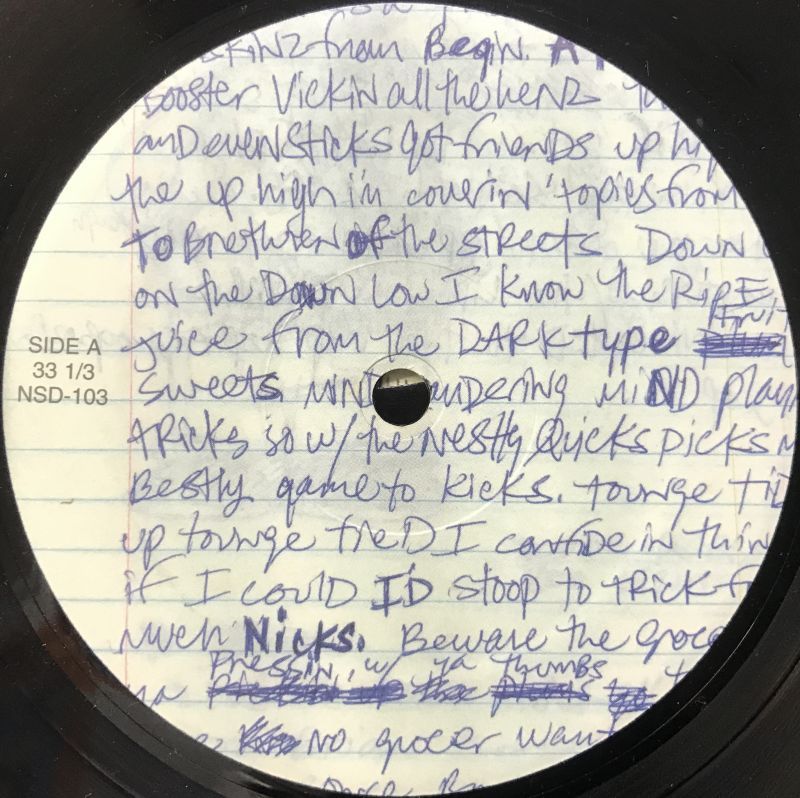 SKINZ from Begin. A
Booster Vickin all the henz
anD eveN Sticks got frienDs up high
the up high in coverin' topies from
To Brethren of the streets Down
on the Down Low I know the RipE
Fruit
juice from the DARK type
sweets MIND wandering miND play
tRicks so w/ the Nestly Quicks picks
Bestly game to kicks. tounge
up tounge tieD I confide in
if I could I'D stoop to tRick
much Nicks. Beware the
pressin' w/ ya thumbs
ya
No grocer want
SIDE A
33 1/3
NSD-103